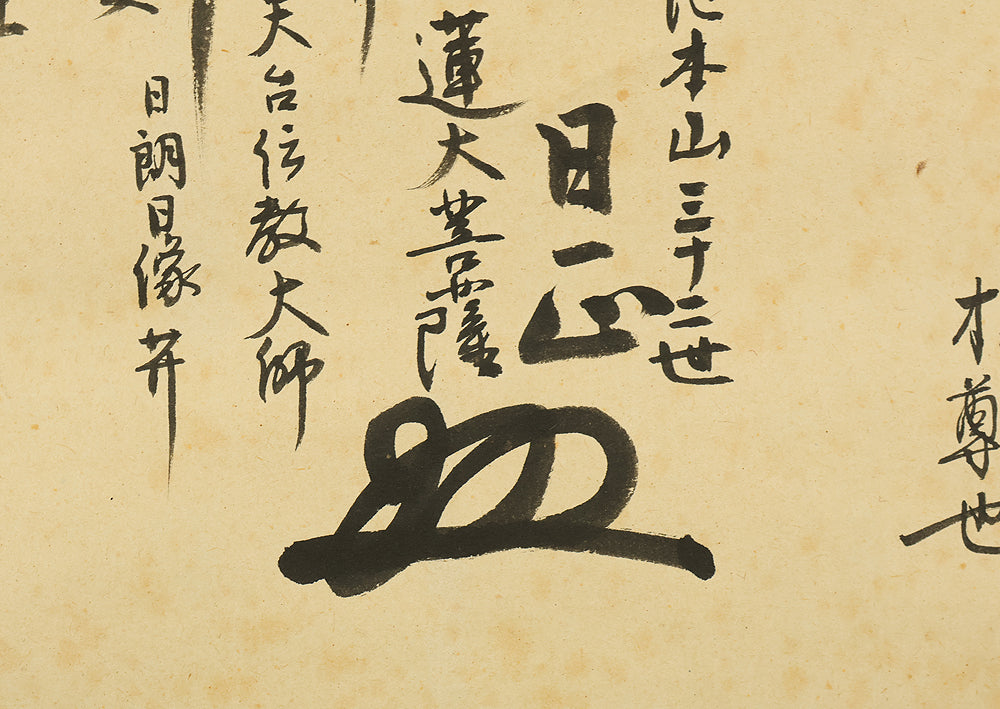 才尊也
本山三十二世
日正
蓮大菩薩
天台伝教大師
日朗日像井